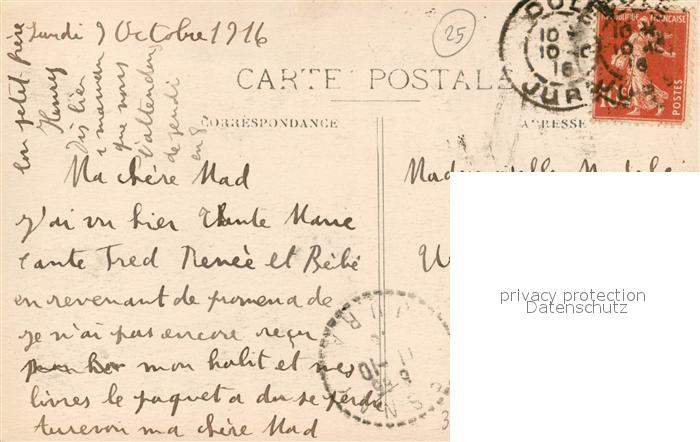 Lundi 9 Octobre 1916
25
CARTE POSTALE
CORRESPONDANCE
ADRESSE
ton petit frère
Henry
Dis bien
a maman
que nous
l'attendons
de jeudi
en 8
Ma chère Mad
J'ai vu hier Tante Marie
Tante Fred Renée et Bébé
en revenant de promenade
je n'ai pas encore reçu
mon habit et mes
livres le paquet a du se perdre
Aurevoir ma chère Mad
DOLE
JURA
10
10
16
RÉPUBLIQUE FRANÇAISE
POSTES
JURA
Mademoiselle
privacy protection
Datenschutz